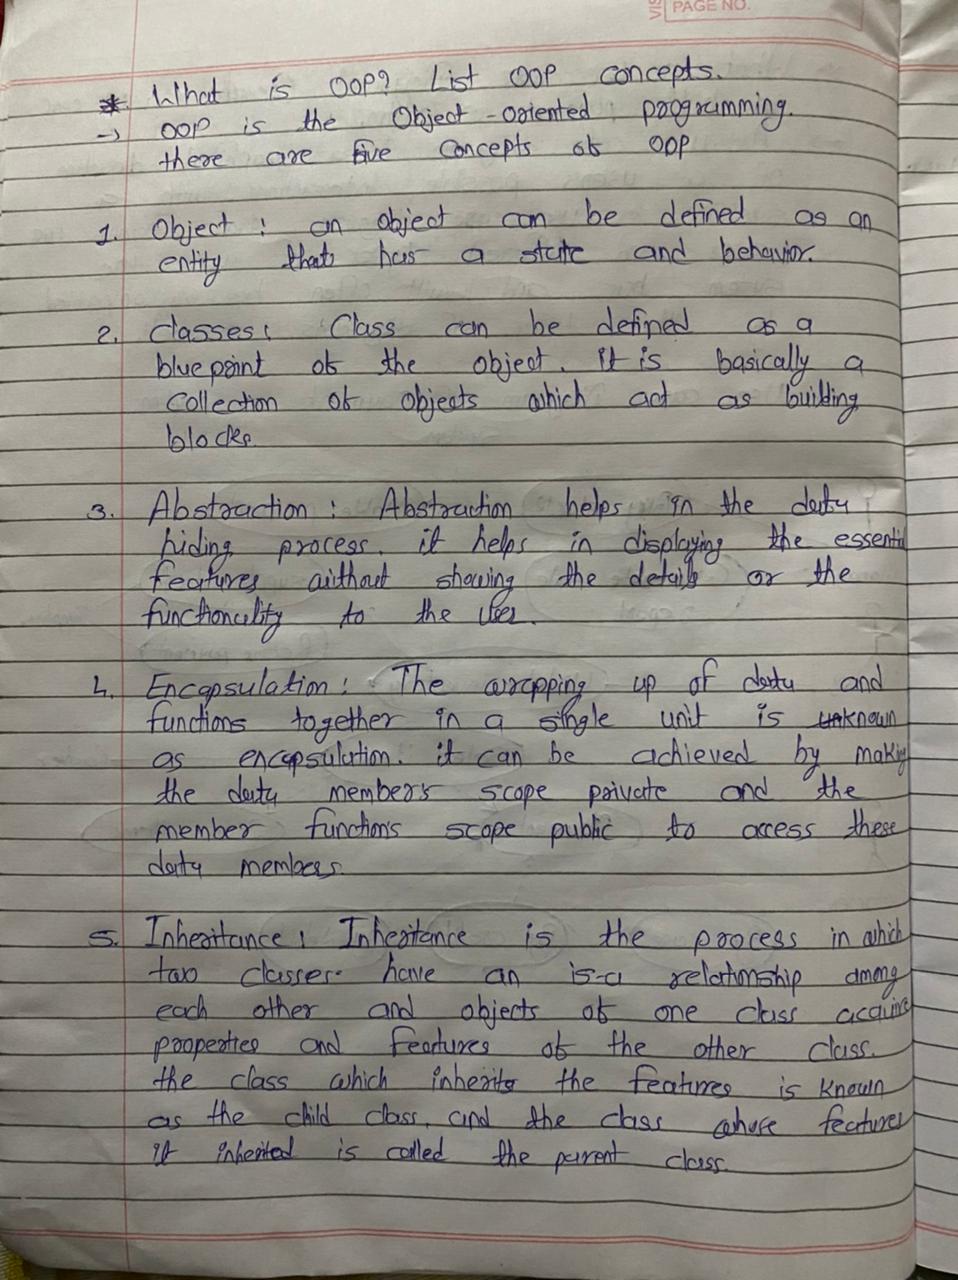 PAGE NO.
* What is OOP? List OOP concepts.
→ OOP is the Object-oriented programming.
there are five concepts of OOP
1. Object : an object can be defined as an
entity that has a state and behavior.
2. Classes: Class can be defined as a
blue point of the object. it is basically a
collection of objects which act as building
blocks.
3. Abstraction : Abstraction helps in the data
hiding process. it helps in displaying the essential
features without showing the details or the
functionality to the user.
4. Encapsulation : The wrapping up of data and
functions together in a single unit is known
as encapsulation. it can be achieved by making
the data member's scope private and the
member function's scope public to access these
data members.
5. Inheritance : Inheritance is the process in which
two classes have an is-a relationship among
each other and objects of one class acquire
properties and features of the other class.
the class which inherits the features is known
as the child class, and the class whose features
it inherited is called the parent class.